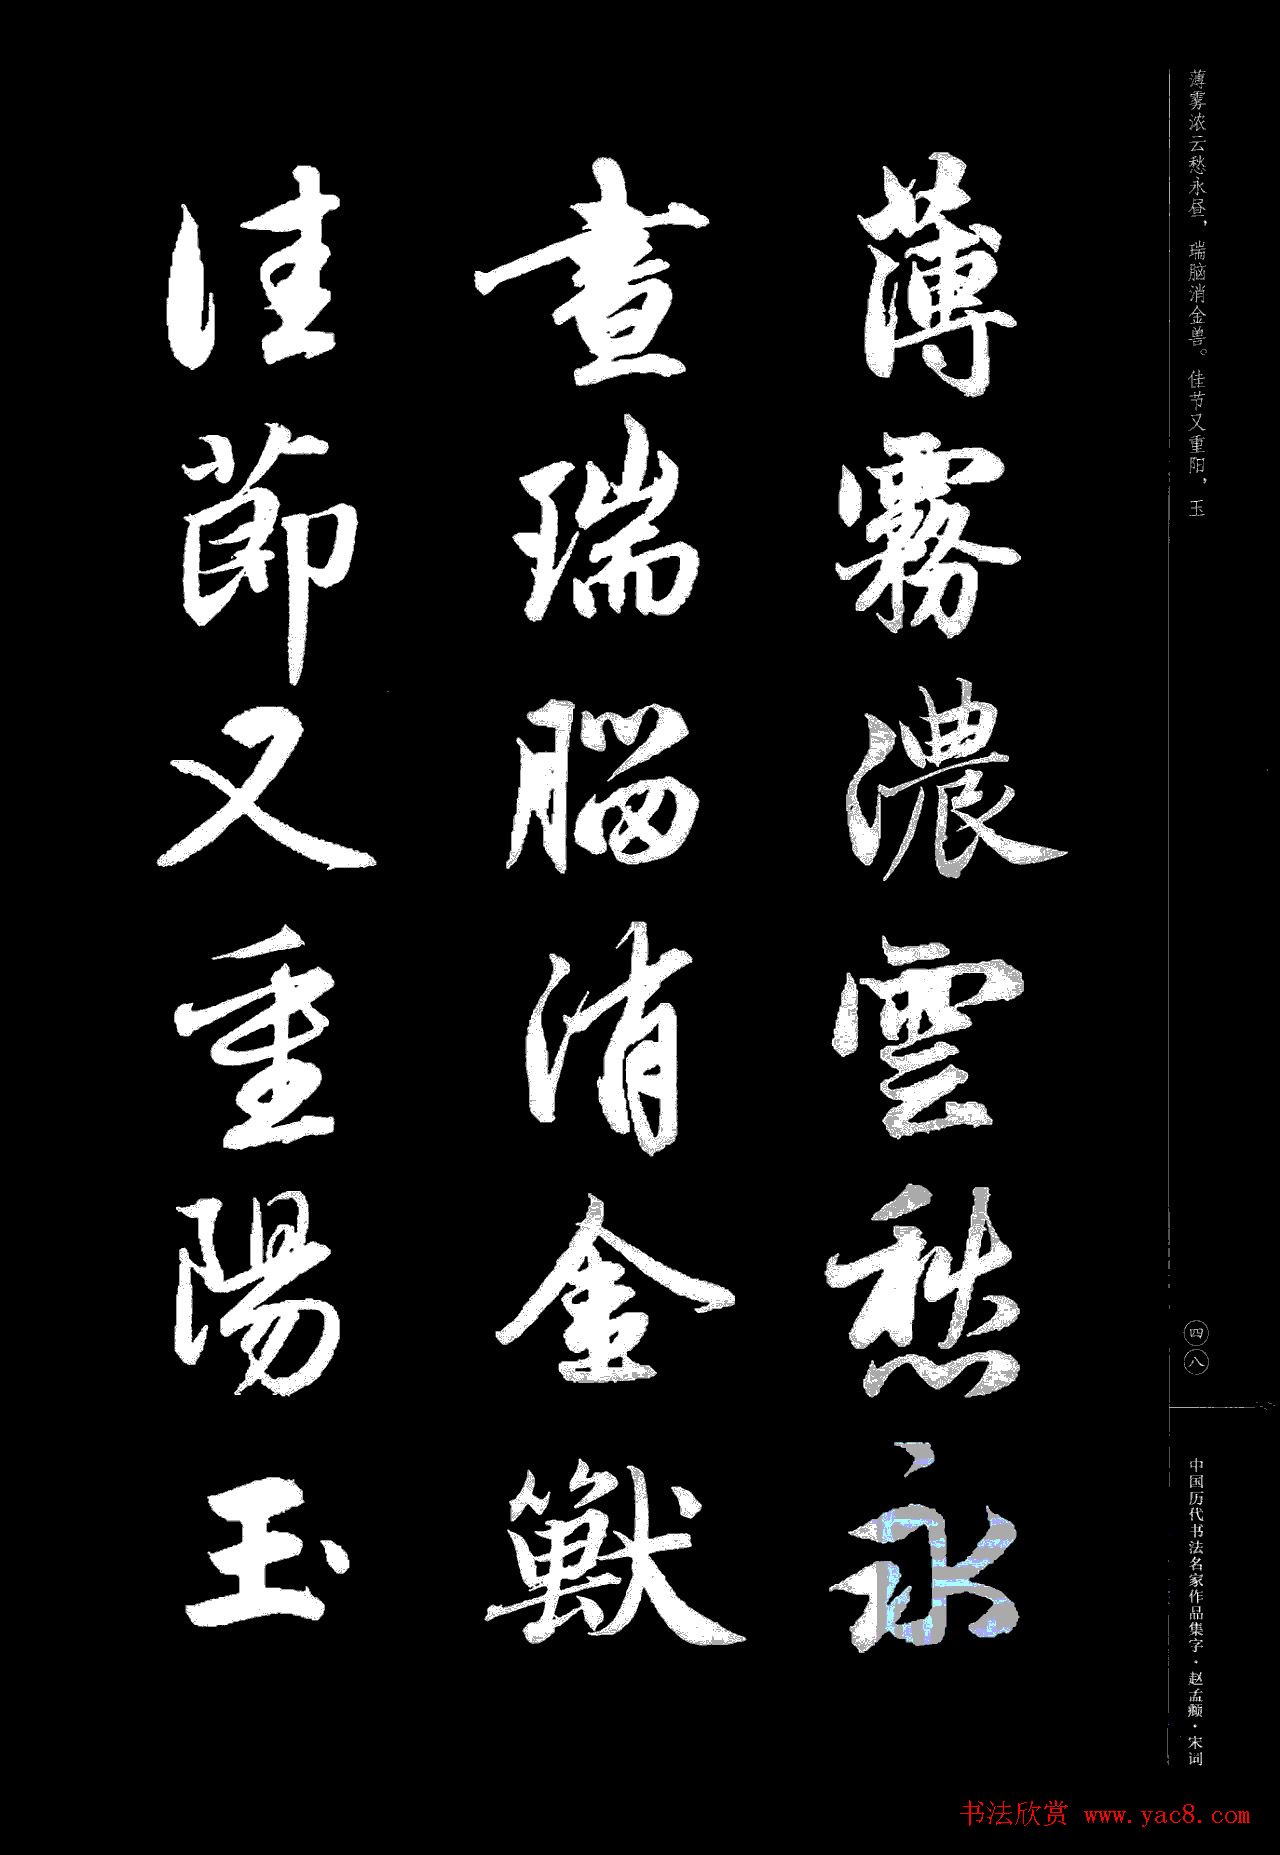 薄霧濃雲愁永
晝瑞腦消金獸
佳節又重陽玉
薄雾浓云愁永昼，瑞脑消金兽。佳节又重阳，玉
四八
中国历代书法名家作品集字·赵孟頫·宋词
书法欣赏 www.yac8.com